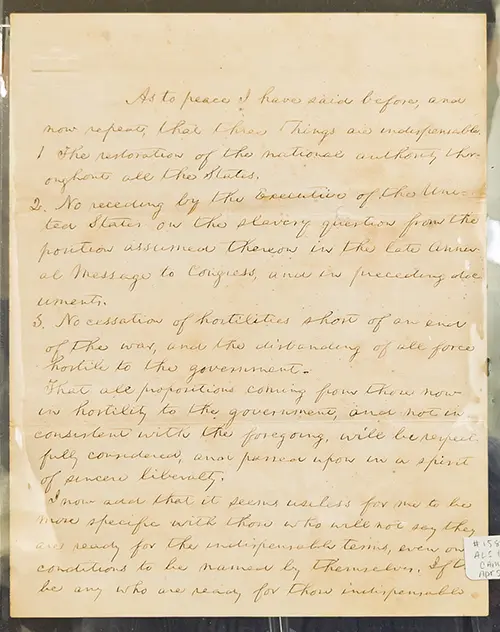 As to peace I have said before, and
now repeat, that three Things are indispensable.
1 The restoration of the national authority thro-
oughout all the States.
2. No receding by the Executive of the Uni-
ted States on the slavery question from the
position assumed thereon in the late Annu-
al Message to Congress, and in preceding doc
uments.
3. No cessation of hostilities short of an end
of the war, and the disbanding of all force
hostile to the government.
That all propositions coming from those now
in hostility to the government, and not in
consistent with the foregoing, will be respect
fully considered, and passed upon in a spirit
of sincere liberalt.
I now add that it seems useless for me to be
more specific with those who will not say they
are ready for the indispensable terms, even on
conditions to be named by themselves. If th
be any who are ready for those indispensable
#158
ALS